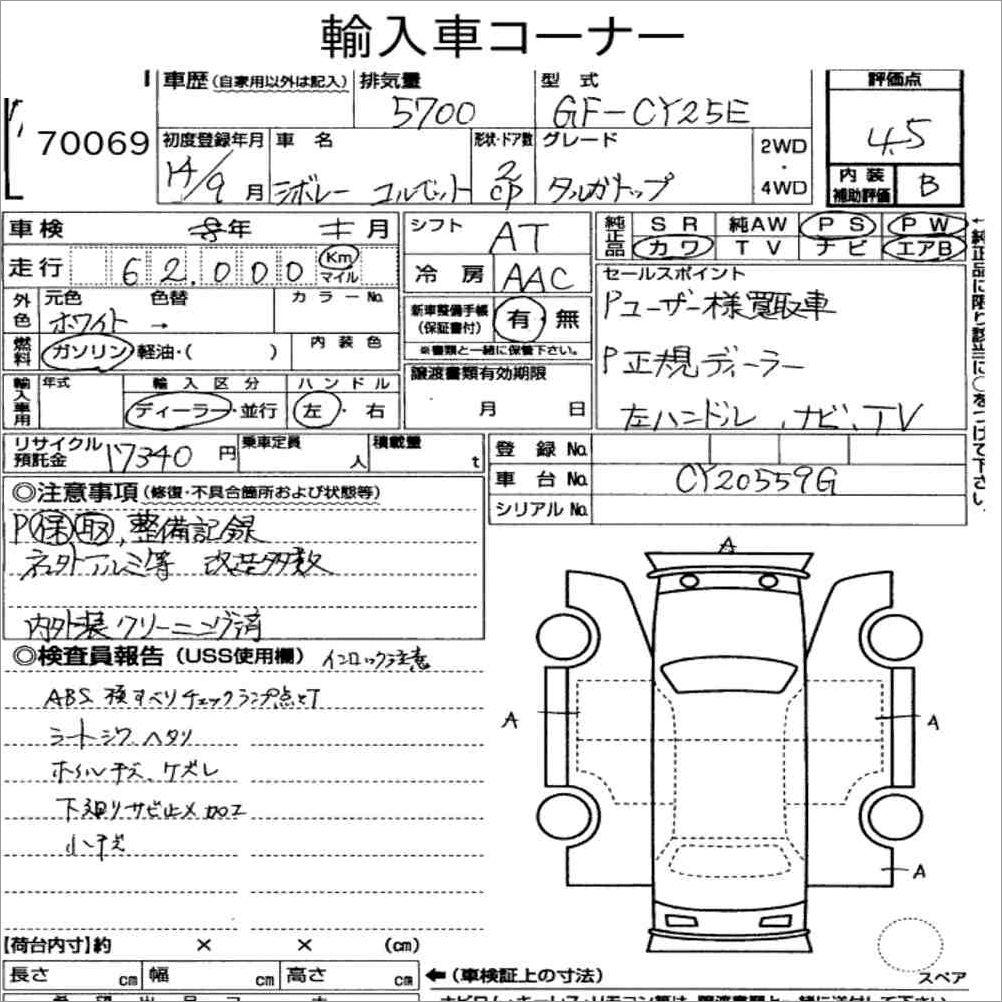 輸入車コーナー
車歴(自家用以外は記入) 排気量 型式 評価点
5700 GF-CY25E 4.5
70069
初度登録年月 車名 形状・ドア数 グレード 2WD・4WD
14/9月 シボレー コルベット 2 cp タルガトップ
内装補助評価 B
車検 年 月 シフト AT
純正品 SR 純AW PS PW
カワ TV ナビ エアB
走行 62,000 Km マイル 冷房 AAC
外色 元色 色替 カラーNo.
ホワイト →
新車整備手帳(保証書付) 有・無
※書類と一緒に保管下さい。
セールスポイント
Pユーザー様買取車
P正規ディーラー
左ハンドル、ナビ、TV
燃料 ガソリン・軽油・( ) 内装色
譲渡書類有効期限
月 日
輸入車用 年式 輸入区分 ハンドル
ディーラー・並行 左・右
リサイクル預託金 17340円 乗車定員 人 積載量 t
登録No.
車台No. CY20559G
シリアルNo.
◎注意事項(修復・不具合箇所および状態等)
P保取、整備記録
改造多数
内外装クリーニング済
◎検査員報告(USS使用欄) インロック注意
ABS 横すべりチェックランプ点灯
シートシワ、ヘタリ
ホイルキズ、ケズレ
下廻りサビ止メ加工
小キズ
A
A
A
A
【荷台内寸】約 × × (cm)
長さ cm 幅 cm 高さ cm ←(車検証上の寸法)
スペア